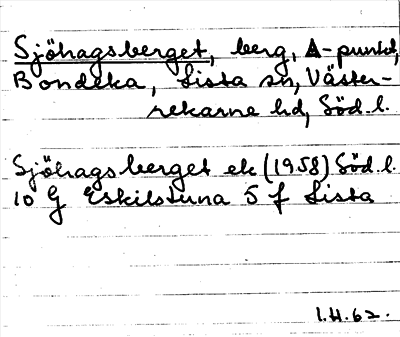 Sjöhagsberget, berg, A-punkt,
Bondeka, Lista sn, Väster-
rekarne hd, Söd.l.
Sjöhagsberget ek (1958) Söd.l.
10 G Eskilstuna 5 f Lista
1.H.62.